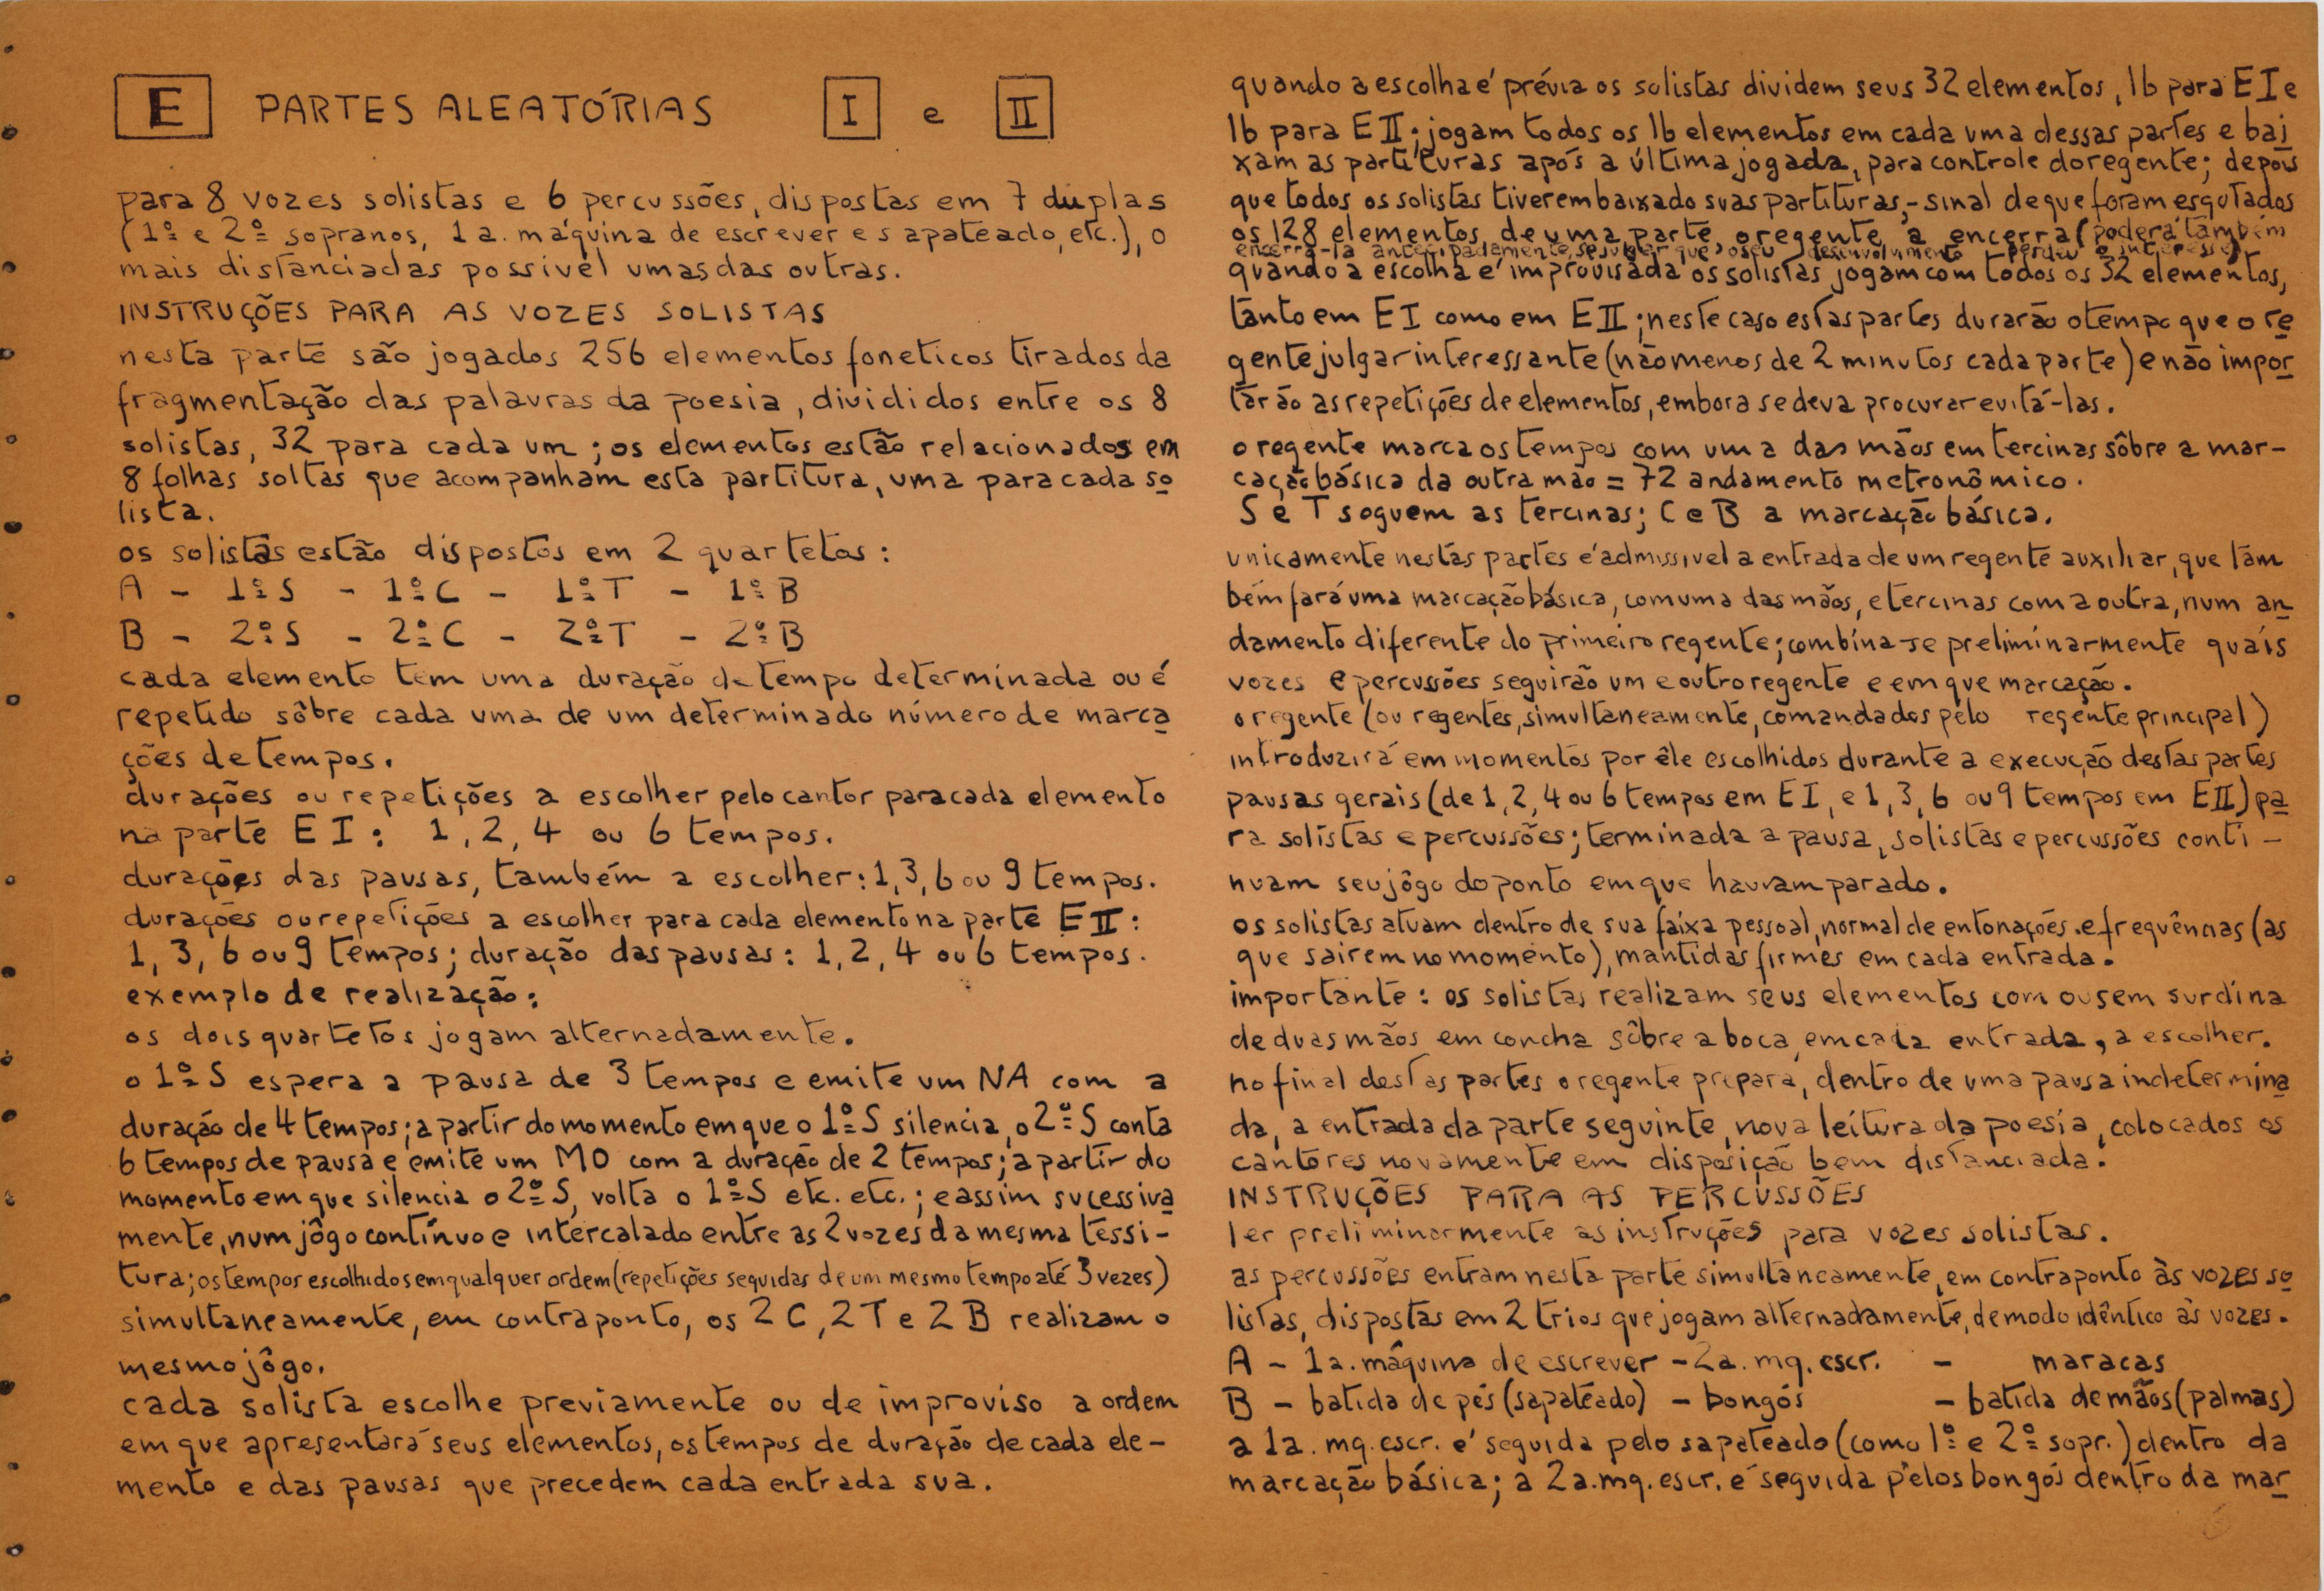 E PARTES ALEATÓRIAS I e II
para 8 vozes solistas e 6 percussões, dispostas em 7 duplas
(1º e 2º sopranos, 1a. máquina de escrever e sapateado, etc.), o
mais distanciadas possivel umas das outras.
INSTRUÇÕES PARA AS VOZES SOLISTAS
nesta parte são jogados 256 elementos foneticos tirados da
fragmentação das palavras da poesia, divididos entre os 8
solistas, 32 para cada um; os elementos estão relacionados em
8 folhas soltas que acompanham esta partitura, uma para cada so
lista.
os solistas estão dispostos em 2 quartetos:
A - 1º S - 1º C - 1º T - 1º B
B - 2º S - 2º C - 2º T - 2º B
cada elemento tem uma duração de tempo determinada ou é
repetido sôbre cada uma de um determinado número de marca
ções de tempos.
durações ou repetições a escolher pelo cantor para cada elemento
na parte E I: 1, 2, 4 ou 6 tempos.
durações das pausas, também a escolher: 1, 3, 6 ou 9 tempos.
durações ou repetições a escolher para cada elemento na parte E II:
1, 3, 6 ou 9 tempos; duração das pausas: 1, 2, 4 ou 6 tempos.
exemplo de realização:
os dois quartetos jogam alternadamente.
o 1º S espera a pausa de 3 tempos e emite um NA com a
duração de 4 tempos; a partir do momento em que o 1º S silencia, o 2º S conta
6 tempos de pausa e emite um MO com a duração de 2 tempos; a partir do
momento em que silencia o 2º S, volta o 1º S etc. etc.; e assim sucessiva
mente, num jôgo contínuo e intercalado entre as 2 vozes da mesma tessi-
tura; os tempos escolhidos em qualquer ordem (repetições seguidas de um mesmo tempo até 3 vezes)
simultaneamente, em contraponto, os 2 C, 2 T e 2 B realizam o
mesmo jôgo.
cada solista escolhe previamente ou de improviso a ordem
em que apresentará seus elementos, os tempos de duração de cada ele-
mento e das pausas que precedem cada entrada sua.
quando a escolha é prévia os solistas dividem seus 32 elementos, 16 para E I e
16 para E II; jogam todos os 16 elementos em cada uma dessas partes e bai
xam as partituras após a última jogada, para controle do regente; depois
que todos os solistas tiverem baixado suas partituras,- sinal de que foram esgotados
os 128 elementos de uma parte, o regente a encerra (poderá também
encerrá-la antecipadamente, se julgar que o seu desenvolvimento perdeu o interesse).
quando a escolha é improvisada os solistas jogam com todos os 32 elementos,
tanto em E I como em E II; neste caso estas partes durarão o tempo que o re
gente julgar interessante (não menos de 2 minutos cada parte) e não impor
tarão as repetições de elementos, embora se deva procurar evitá-las.
o regente marca os tempos com uma das mãos em tercinas sôbre a mar-
cação básica da outra mão = 72 andamento metronômico.
S e T seguem as tercinas; C e B a marcação básica.
unicamente nestas partes é admissivel a entrada de um regente auxiliar, que tam
bém fará uma marcação básica, com uma das mãos, e tercinas com a outra, num an
damento diferente do primeiro regente; combina-se preliminarmente quais
vozes e percussões seguirão um e outro regente e em que marcação.
o regente (ou regentes, simultaneamente, comandados pelo regente principal)
introduzirá em momentos por êle escolhidos durante a execução destas partes
pausas gerais (de 1, 2, 4 ou 6 tempos em E I, e 1, 3, 6 ou 9 tempos em E II) pa
ra solistas e percussões; terminada a pausa, solistas e percussões conti-
nuam seu jôgo do ponto em que haviam parado.
os solistas atuam dentro de sua faixa pessoal, normal de entonações e frequências (as
que sairem no momento), mantidas firmes em cada entrada.
importante: os solistas realizam seus elementos com ou sem surdina
de duas mãos em concha sôbre a boca, em cada entrada, a escolher.
no final destas partes o regente prepara, dentro de uma pausa indetermina
da, a entrada da parte seguinte, nova leitura da poesia, colocados os
cantores novamente em disposição bem distanciada.
INSTRUÇÕES PARA AS PERCUSSÕES
ler preliminarmente as instruções para vozes solistas.
as percussões entram nesta parte simultaneamente, em contraponto às vozes so
listas, dispostas em 2 trios que jogam alternadamente, de modo idêntico às vozes.
A - 1a. máquina de escrever - 2a. mq. escr. - maracas
B - batida de pés (sapateado) - bongós - batida de mãos (palmas)
a 1a. mq. escr. é seguida pelo sapateado (como 1º e 2º sopr.) dentro da
marcação básica; a 2a. mq. escr. é seguida pelos bongós dentro da mar